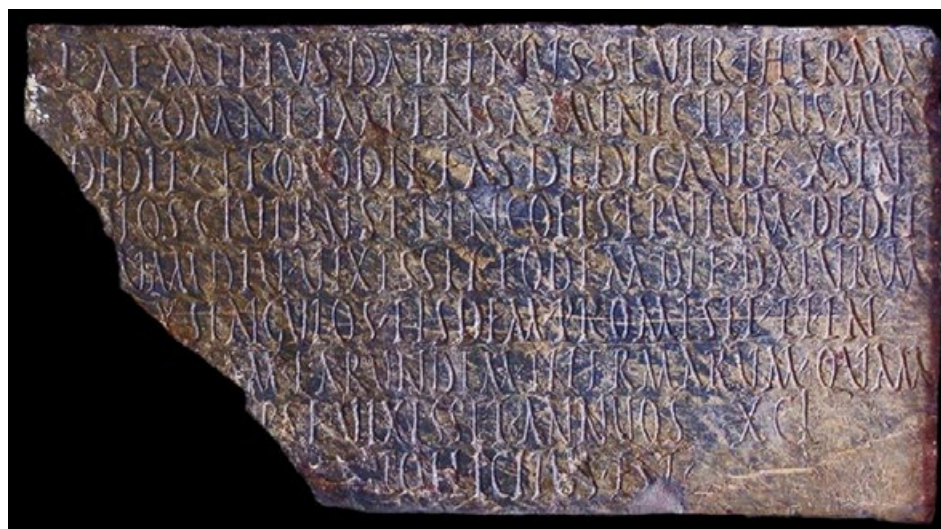 L·AEMILIVS·DAPHNVS·SEVIR·THERMAS
VA·OMNI·IMPENSA·MVNICIPIBVS·MVRG
DEDIT·ET·QVO·DIE·EAS·DEDICAVIT·X SIN
LOS·CIVIBVS·ET·INCOLIS·EPVLVM·DEDIT
AMDIV·VIXISSET·EODEM·DIE·DATVRVM
X SINGVLOS·EISDEM·PROMISIT·ET·IN
M EARVNDEM THERMARVM·QVAM
PSE VIXISSET·ANNVOS X CL
POLLICITVS·EST·